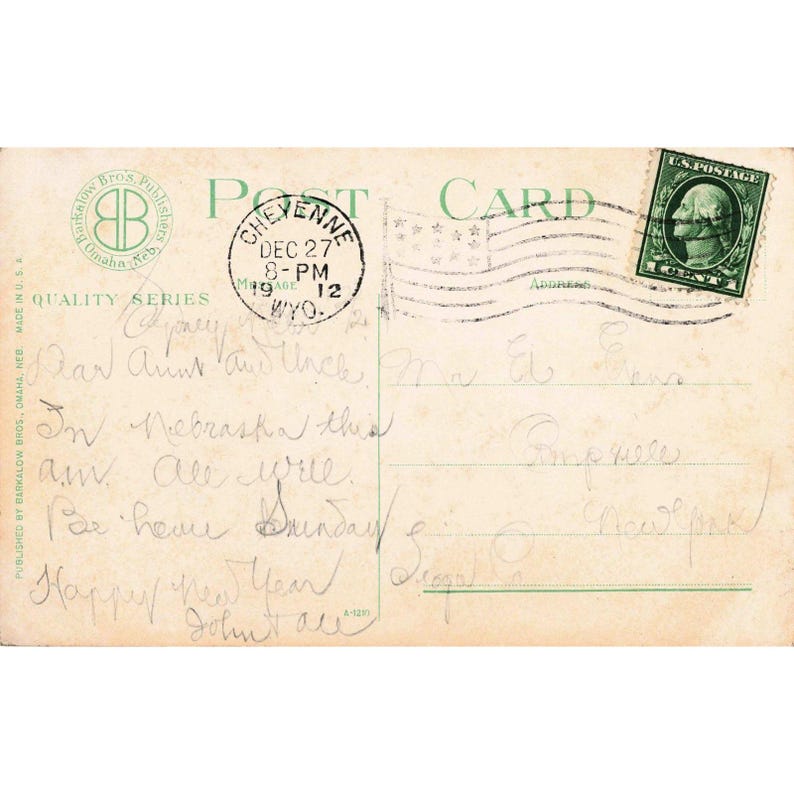 Barkalow Bros. Publishers
Omaha, Neb.
BB
POST CARD
U.S. POSTAGE
1 CENT 1
CHEYENNE
DEC 27
8-PM
19 12
WYO.
MESSAGE
ADDRESS
QUALITY SERIES
PUBLISHED BY BARKALOW BROS., OMAHA, NEB. MADE IN U.S.A.
Dear Aunt and Uncle.
In Nebraska this
a.m. All well.
Be home Sunday
Happy New Year
John & all
A-1210
Mr Ed
New York
Tioga Co